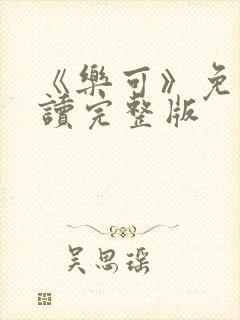 《樂可》免
讀完整版
吴思瑶